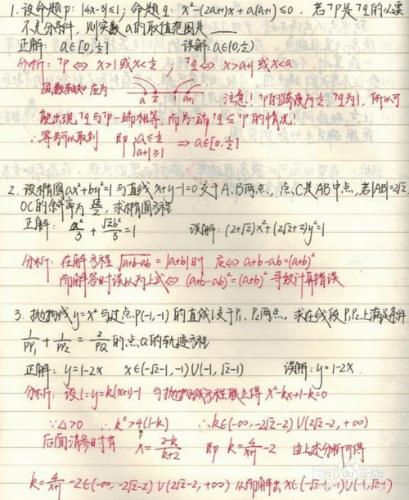 1. 设命题p: |4x-3|≤1; 命题q: x²-(2a+1)x+a(a+1)≤0, 若¬p是¬q的必要
不充分条件, 则实数a的取值范围是
正解: a∈[0,½] 误解: a∈(0,½)
分析: ¬p ⇔ x>1或x<½ ¬q ⇔ x>a+1或x<a
a ½ 1 a+1 注意! ¬p的跨度为½, ¬q为1, 所以可
能出现¬q与¬p一端相等, 而另一端¬q≤¬p的情况!
∴等号可取到 即 {a≤½ a+1≥1 ⇒ a∈[0,½]
2. 设椭圆ax²+by²=1与直线x+y-1=0交于A、B两点, 点C是AB中点, 若|AB|=2√2,
OC的斜率为√2/2, 求椭圆方程
正解: x²/3 + √2y²/3 = 1 误解: (2+√2)x²+(2√2+2)y²=1
分析: 在解方程 √(a+b-ab) = |a+b| 时 应⇔ a+b-ab=(a+b)²
而解答时误以为上式⇔ (a+b-ab)²=(a+b)² 导致计算错误
3. 抛物线y=x²与过点P(-1,-1)的直线l交于P₁、P₂两点, 求在线段P₁P₂上满足条件
1/PP₁ + 1/PP₂ = 2/PQ 的点Q的轨迹方程
正解: y=1-2x x∈(-√2-1,-1)∪(-1,√2-1) 误解: y=1-2x
分析: 设l: y=k(x+1)-1 与抛物线方程联立得 x²-kx+1-k=0
∵△>0 ∴k²>4(1-k) ∴k∈(-∞,-2√2-2)∪(2√2-2,+∞)
后面消参时有 x=(2-k)/(k+2) 即 k=4/(x+1)-2 由上述分析可得
k=4/(x+1)-2∈(-∞,-2√2-2)∪(2√2-2,+∞) 从而解出x∈(-√2-1,-1)∪(-1,√2-1)